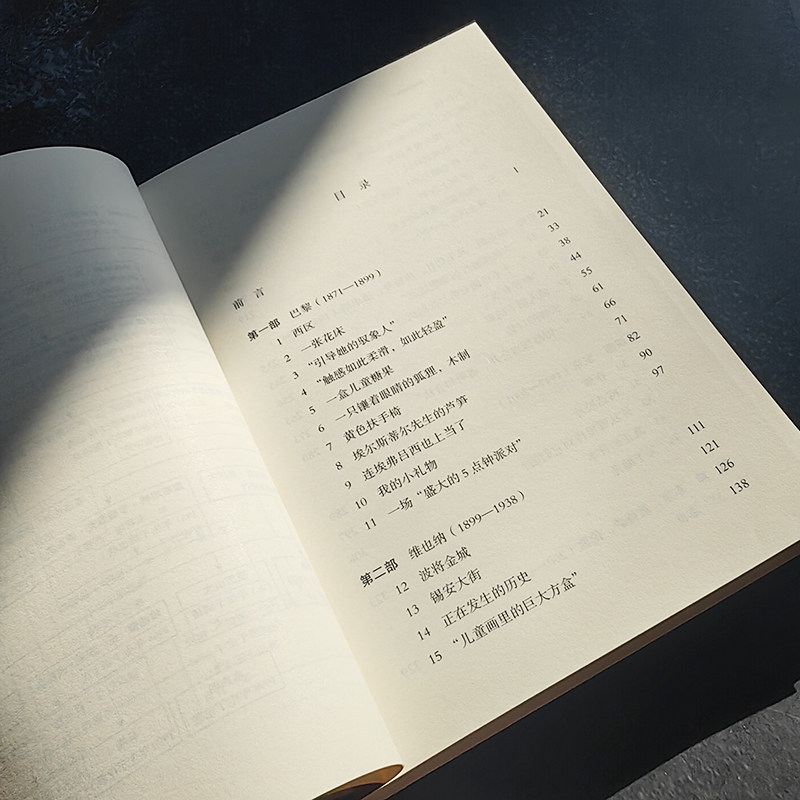 目 录
前 言 1
第一部 巴黎（1871—1899）
1 西区 21
2 一张花床 33
3 “引导她的驭象人” 38
4 “触感如此柔滑，如此轻盈” 44
5 一盒儿童糖果 55
6 一只镶着眼睛的狐狸，木制 61
7 黄色扶手椅 66
8 埃尔斯蒂尔先生的芦笋 71
9 连埃弗吕西也上当了 82
10 我的小礼物 90
11 一场“盛大的 5 点钟派对” 97
第二部 维也纳（1899—1938）
12 波将金城 111
13 锡安大街 121
14 正在发生的历史 126
15 “儿童画里的巨大方盒” 138